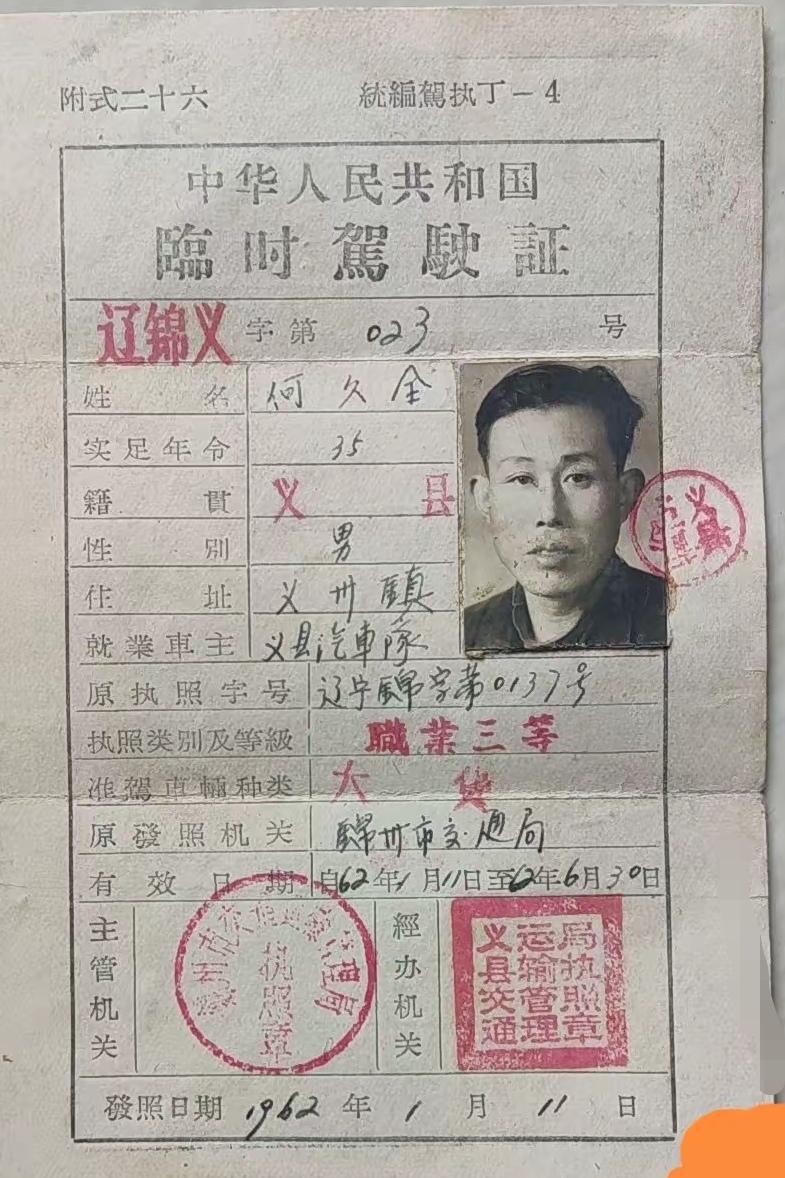 附式二十六 統編駕执丁-4
中华人民共和国
臨时駕駛証
辽锦义 字第 023 号
姓名 何久全
实足年令 35
籍貫 义县
性別 男
住址 义卅鎮
就業車主 义县汽車隊
原执照字号 辽宁錦字第0137号
执照类別及等級 職業三等
准駕車輛种类 大货
原發照机关 錦卅市交通局
有效日期 自62年1月11日至62年6月30日
主管机关 执照章
經办机关 义县交通运输管理局执照章
發照日期 1962年1月11日